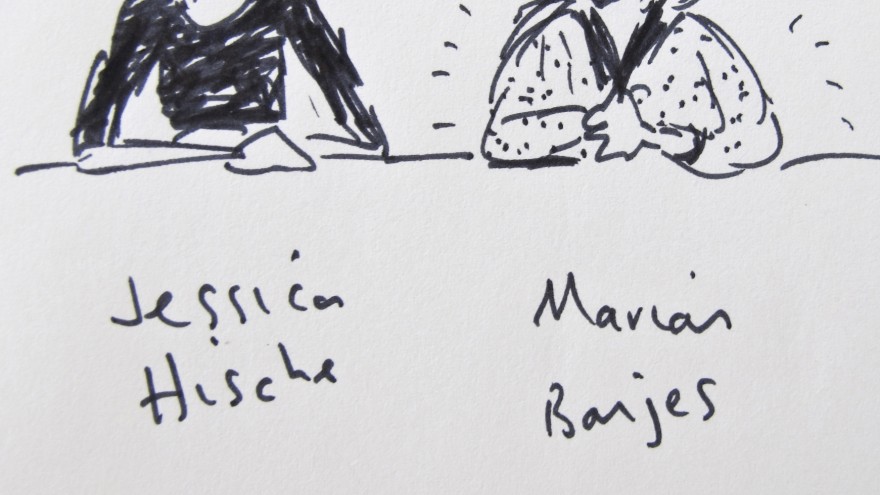 Jessica
Hische
Marian
Banjes